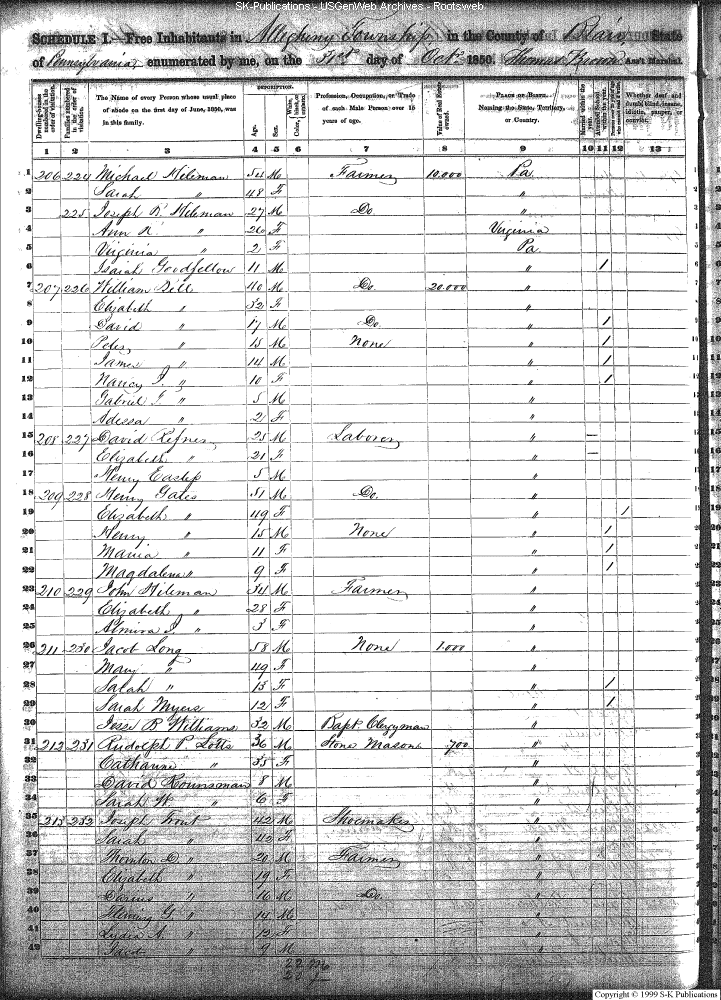 SK-Publications - USGenWeb Archives - Rootsweb
SCHEDULE I.—Free Inhabitants in Allegheny Township in the County of Blair State
of Pennsylvania enumerated by me, on the 31st day of Oct. 1850. Thomas Ass't Marshal.
DESCRIPTION.
Dwelling-houses numbered in the order of visitation. Families numbered in the order of visitation. The Name of every Person whose usual place of abode on the first day of June, 1850, was in this family. Age. Sex. White, black, or mulatto. Color, Profession, Occupation, or Trade of each Male Person over 15 years of age. Value of Real Estate owned. PLACE OF BIRTH. Naming the State, Territory, or Country. Married within the year. Attended School within the year. Whether deaf and dumb, blind, insane, idiotic, pauper, or convict.
1 2 3 4 5 6 7 8 9 10 11 12 13
1 206 224 Michael Hileman 54 M Farmer 10.000 Pa
2 Sarah " 48 F "
3 225 Joseph R. Hileman 27 M Do. "
4 Ann " 20 F Virginia
5 Virginia " 2 F Pa
6 Isaiah Goodfellow 11 M " /
7 207 226 William Dill 40 M Do. 20.000 "
8 Elizabeth " 32 F "
9 David " 17 M Do. " /
10 Peter " 15 M None " /
11 James " 14 M " /
12 Nancy J. " 10 F " /
13 Gabriel T. " 5 M "
14 Adessa " 2 F "
15 208 227 David 25 M Laborer " –
16 Elizabeth " 21 F " –
17 Henry 5 M "
18 209 228 Henry Gates 51 M Do. "
19 Elizabeth " 49 F " /
20 Henry " 15 M None " /
21 Maria " 11 F " /
22 Magdalena " 9 F " /
23 210 229 John Hileman 34 M Farmer "
24 Elizabeth " 28 F "
25 Almira J. " 3 F "
26 211 230 Jacob Long 58 M None 1.000 "
27 Mary " 49 F "
28 Salah " 13 F " /
29 Sarah Myers 12 F " /
30 Jesse B Williams 32 M Bapt Clergyman "
31 212 231 Rudolph P. Lotts 36 M Stone Mason 700 "
32 Catharine " 35 F "
33 David Rounsman 8 M "
34 Sarah W. " 6 F "
35 213 232 Joseph Trout 42 M Shoemaker "
36 Sarah " 42 F "
37 Thornton D. " 20 M Farmer "
38 Elizabeth " 19 F "
39 Darius " 16 M Do. "
40 Fleming G. " 14 M "
41 Lydia A. " 12 F "
42 " 9 M "
Copyright © 1999 S-K Publications